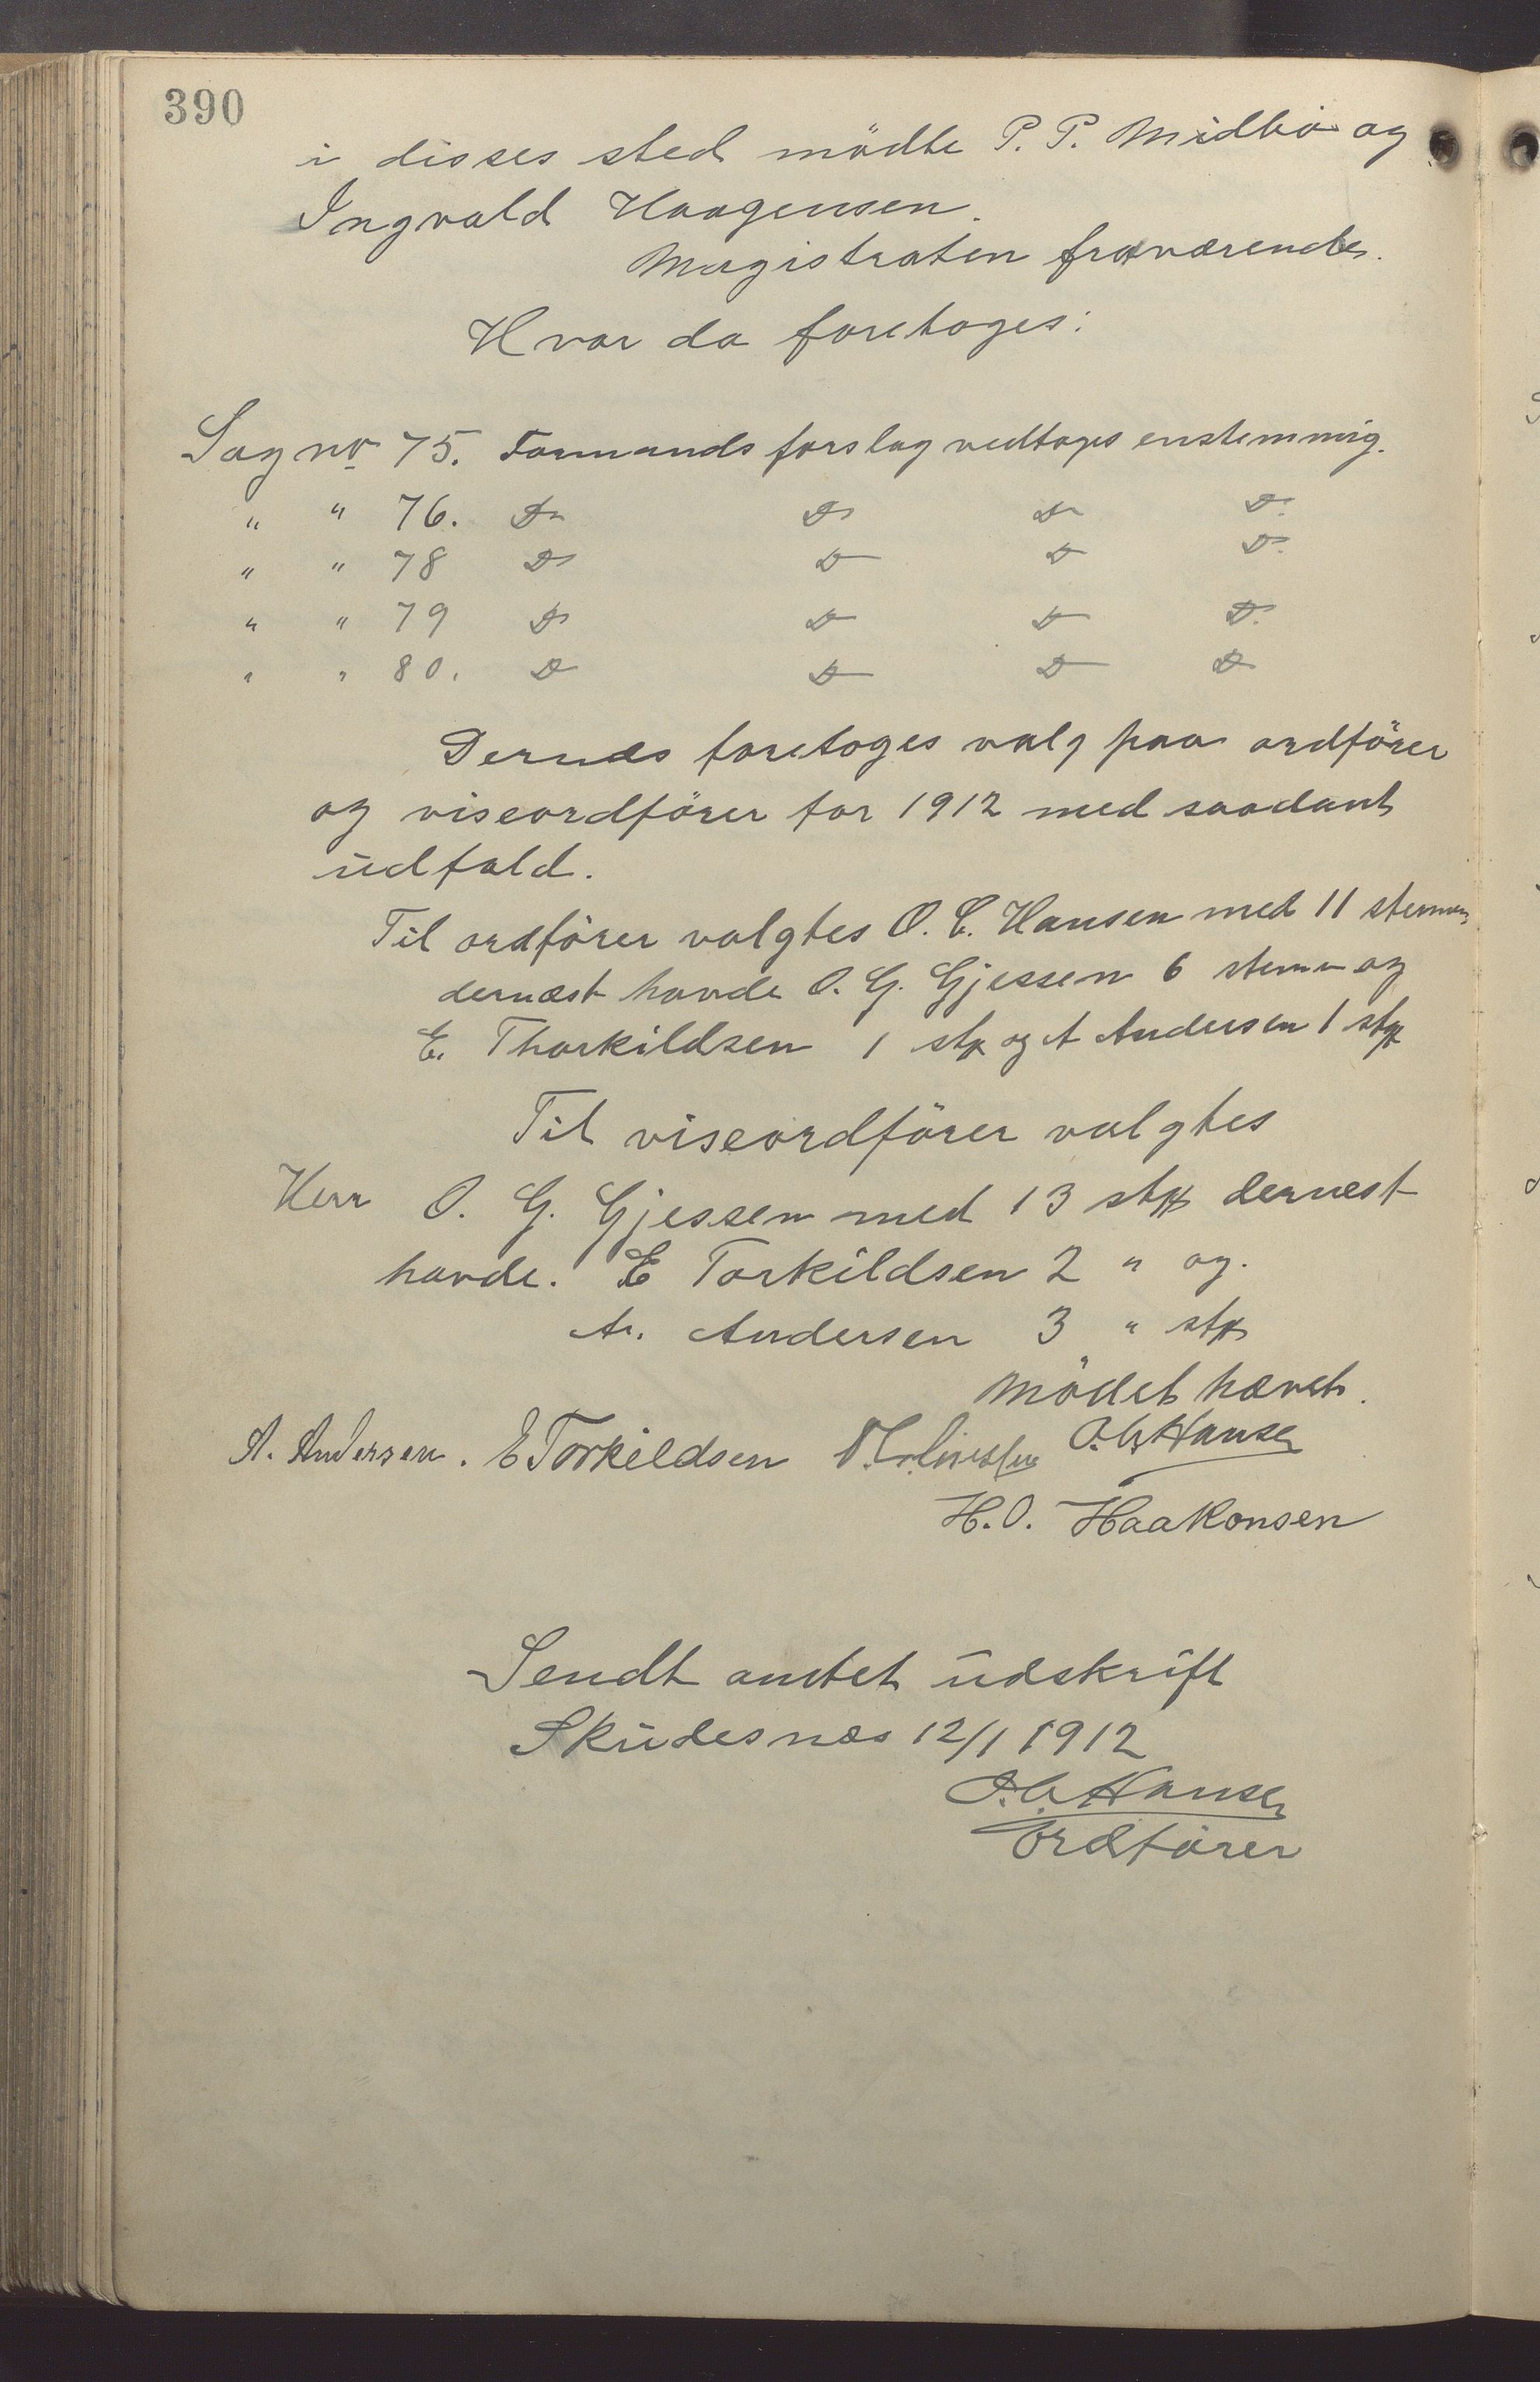 390
i disses sted mödte P. P. Midbö og
Ingvald Haagensen.
Magistraten fraværende.
Hvor da foretoges:
Sag no 75. Formands forslag vedtoges enstemmig.
" " 76. Do Do Do Do.
" " 78 Do Do Do Do.
" " 79 Do Do Do Do.
" " 80. Do Do Do Do
Dernæs foretoges valg paa ordförer
og viseordförer for 1912 med saadant
udfald.
Til ordförer valgtes O. C. Hansen med 11 stemmer
dernæst havde O. G. Gjessen 6 stemm og
E. Thorkildsen 1 st og A Andersen 1 st
Til viseordförer valgtes
Herr O. G. Gjessen med 13 st dernæst
havde. E Torkildsen 2 " og.
A. Andersen 3 " st
Mödet hævet.
A. Andersen. E Torkildsen O. C. Hansen
H. O. Haakonsen
Sendt amtet udskrift
Skudesnæs 12/1 1912
O. C. Hansen
Ordförer